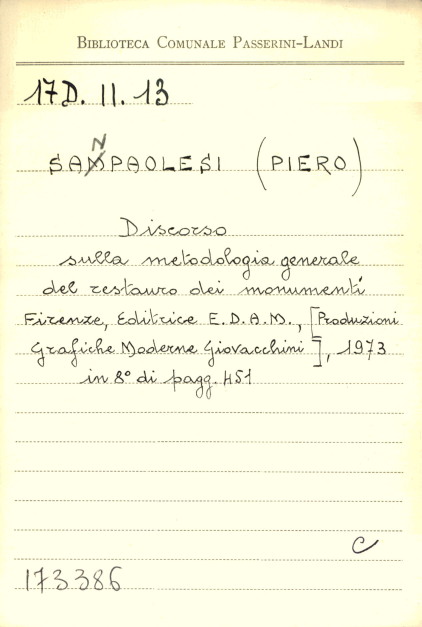 BIBLIOTECA COMUNALE PASSERINI-LANDI
17D. II. 13
N
SANPAOLESI (PIERO)
Discorso
sulla metodologia generale
del restauro dei monumenti
Firenze, Editrice E.D.A.M., [Produzioni
Grafiche Moderne Giovacchini], 1973
in 8° di pagg. 451
C
173386